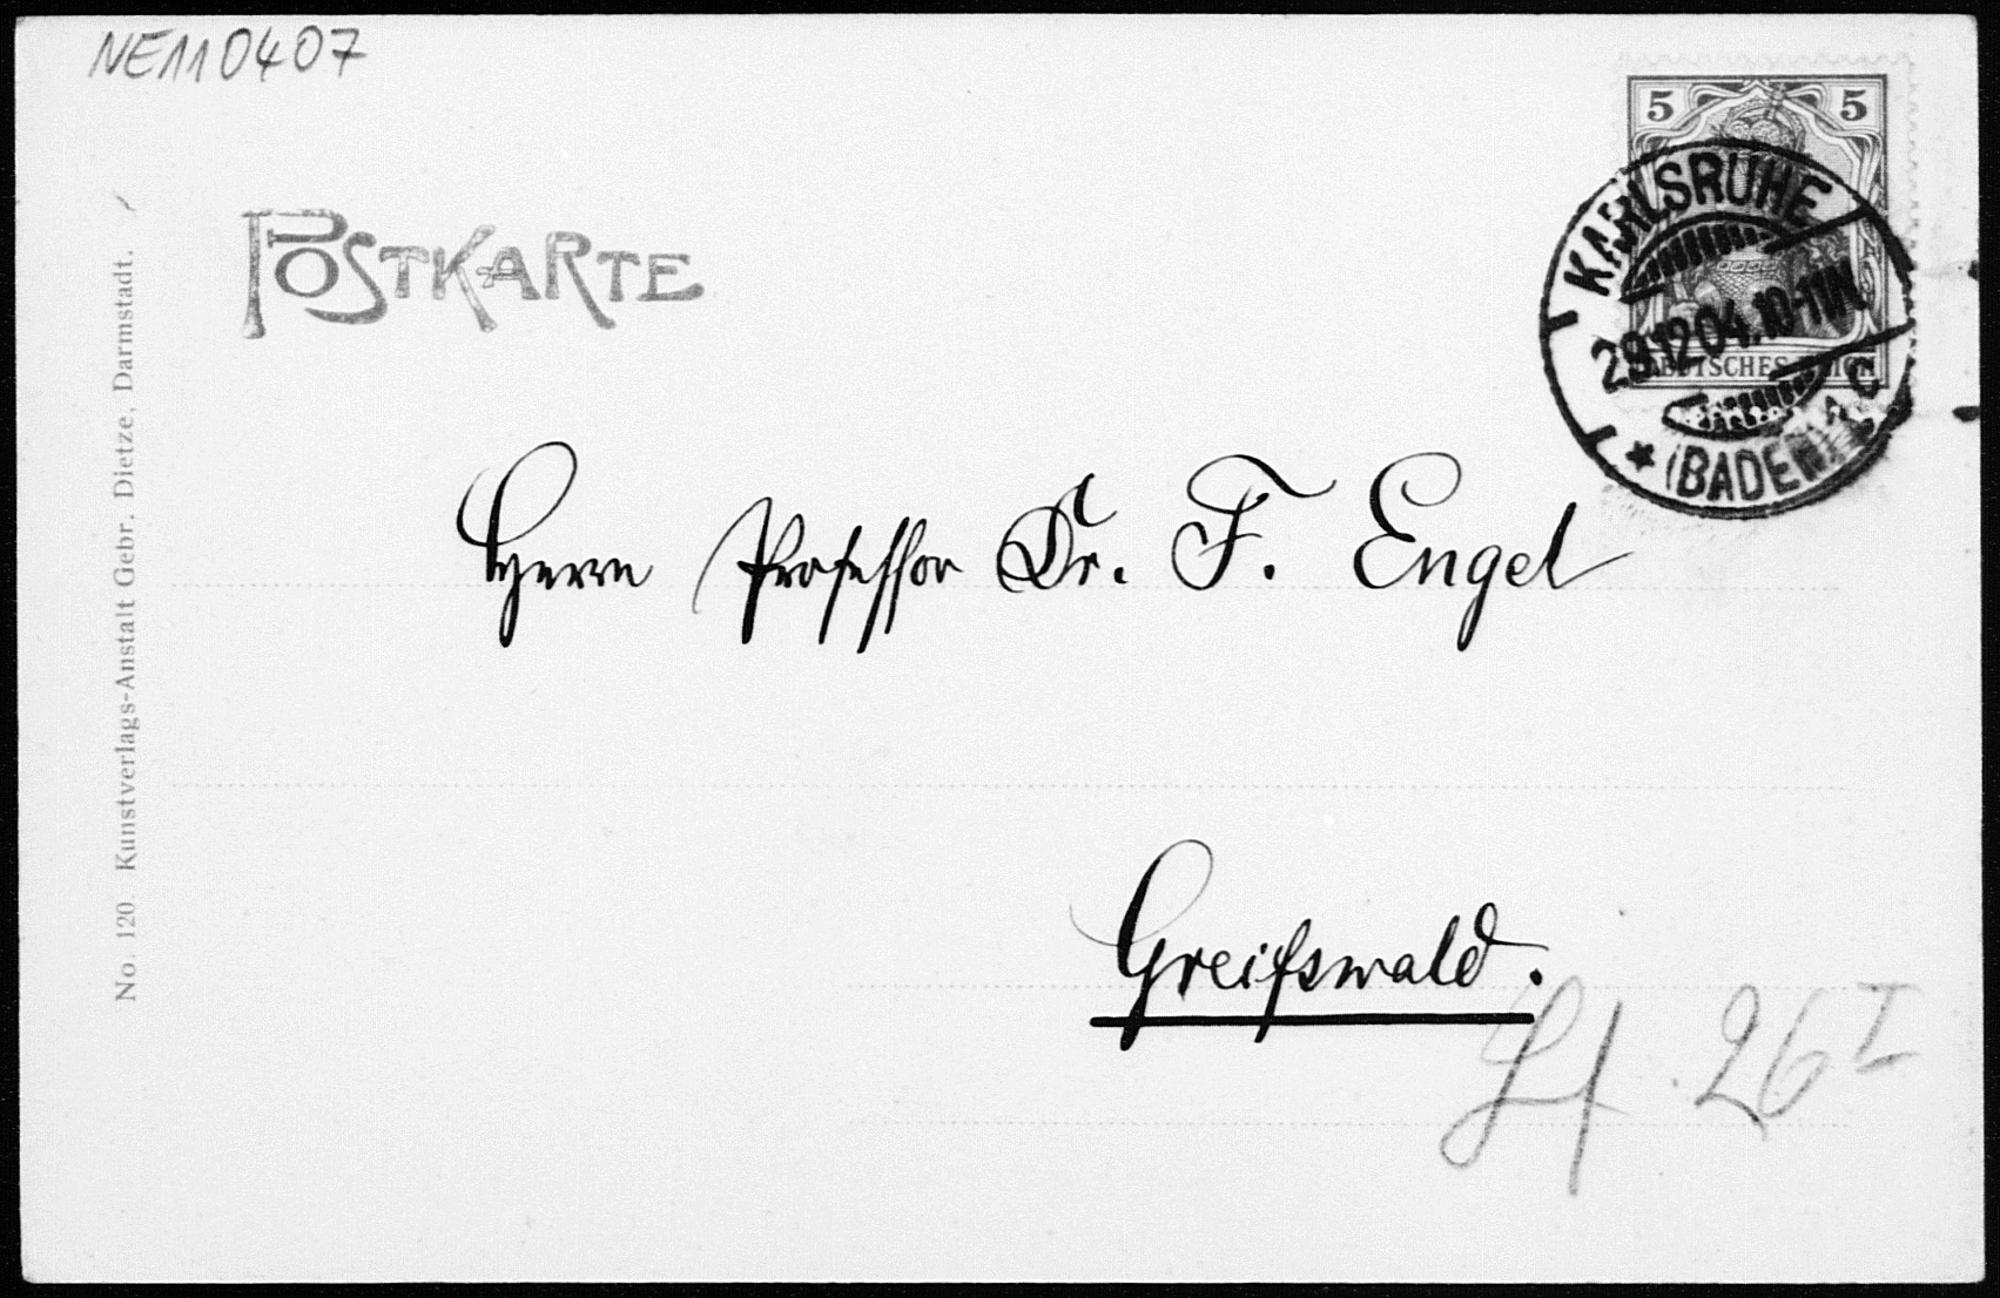 NE110407
POSTKARTE
5 5
DEUTSCHES REICH
KARLSRUHE
29.12.04.10-11V.
* (BADEN) 1 C
Herrn Professor Dr. F. Engel
Greifswald.
26 I
No. 120. Kunstverlags-Anstalt Gebr. Dietze, Darmstadt.